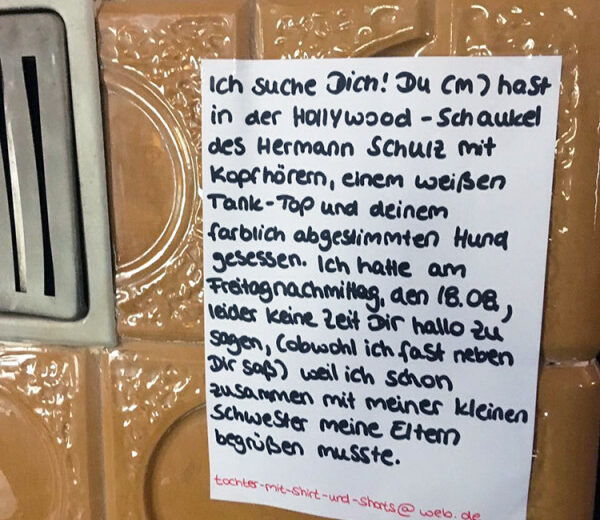 Ich suche Dich! Du (m) hast
in der Hollywood-Schaukel
des Hermann Schulz mit
Kopfhörern, einem weißen
Tank-Top und deinem
farblich abgestimmten Hund
gesessen. Ich hatte am
Freitagnachmittag, den 18.08.,
leider keine Zeit Dir hallo zu
sagen, (obwohl ich fast neben
Dir saß) weil ich schon
zusammen mit meiner kleinen
Schwester meine Eltern
begrüßen musste.
tochter-mit-shirt-und-shorts@web.de